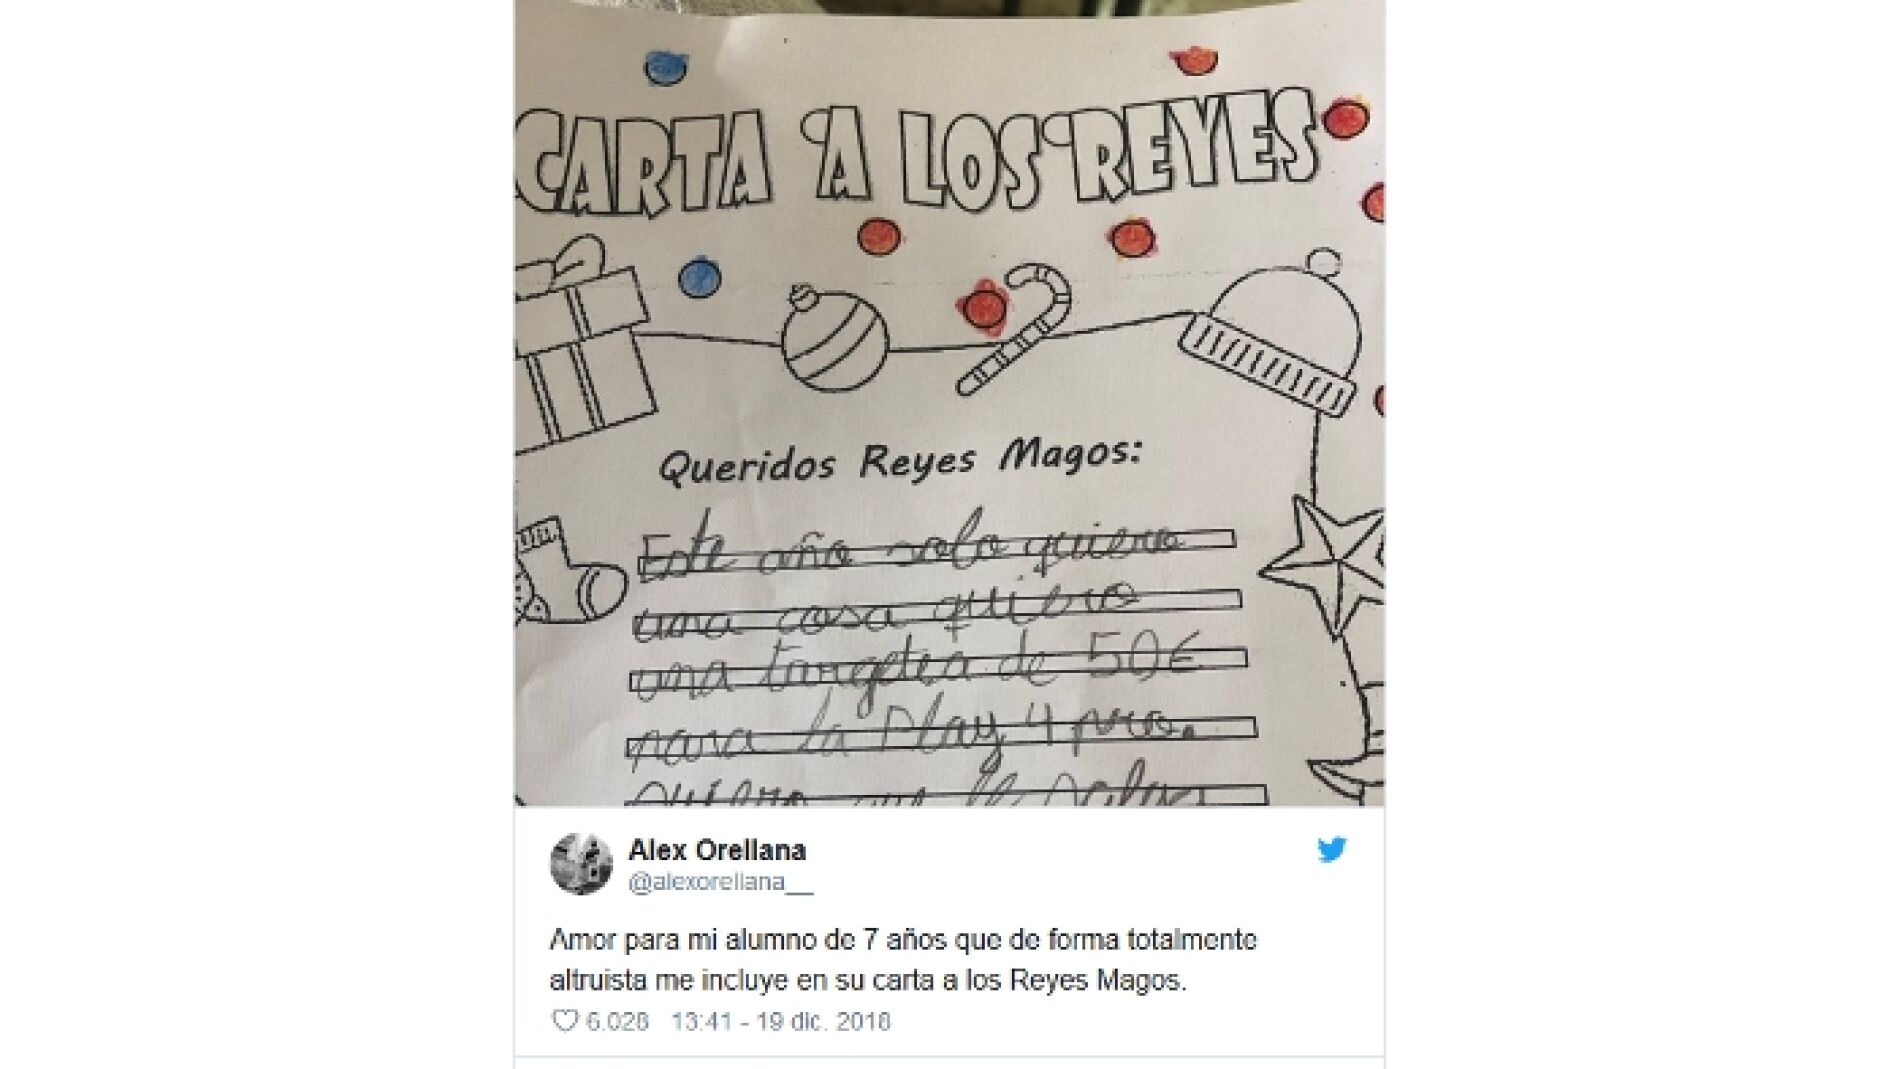 CARTA A LOS REYES
Queridos Reyes Magos:
Este año solo quiero
una cosa quiero
una targetea de 50€
para la Play 4 pro.
Quiero que le
Alex Orellana
@alexorellana__
Amor para mi alumno de 7 años que de forma totalmente
altruista me incluye en su carta a los Reyes Magos.
6.028 13:41 - 19 dic. 2018